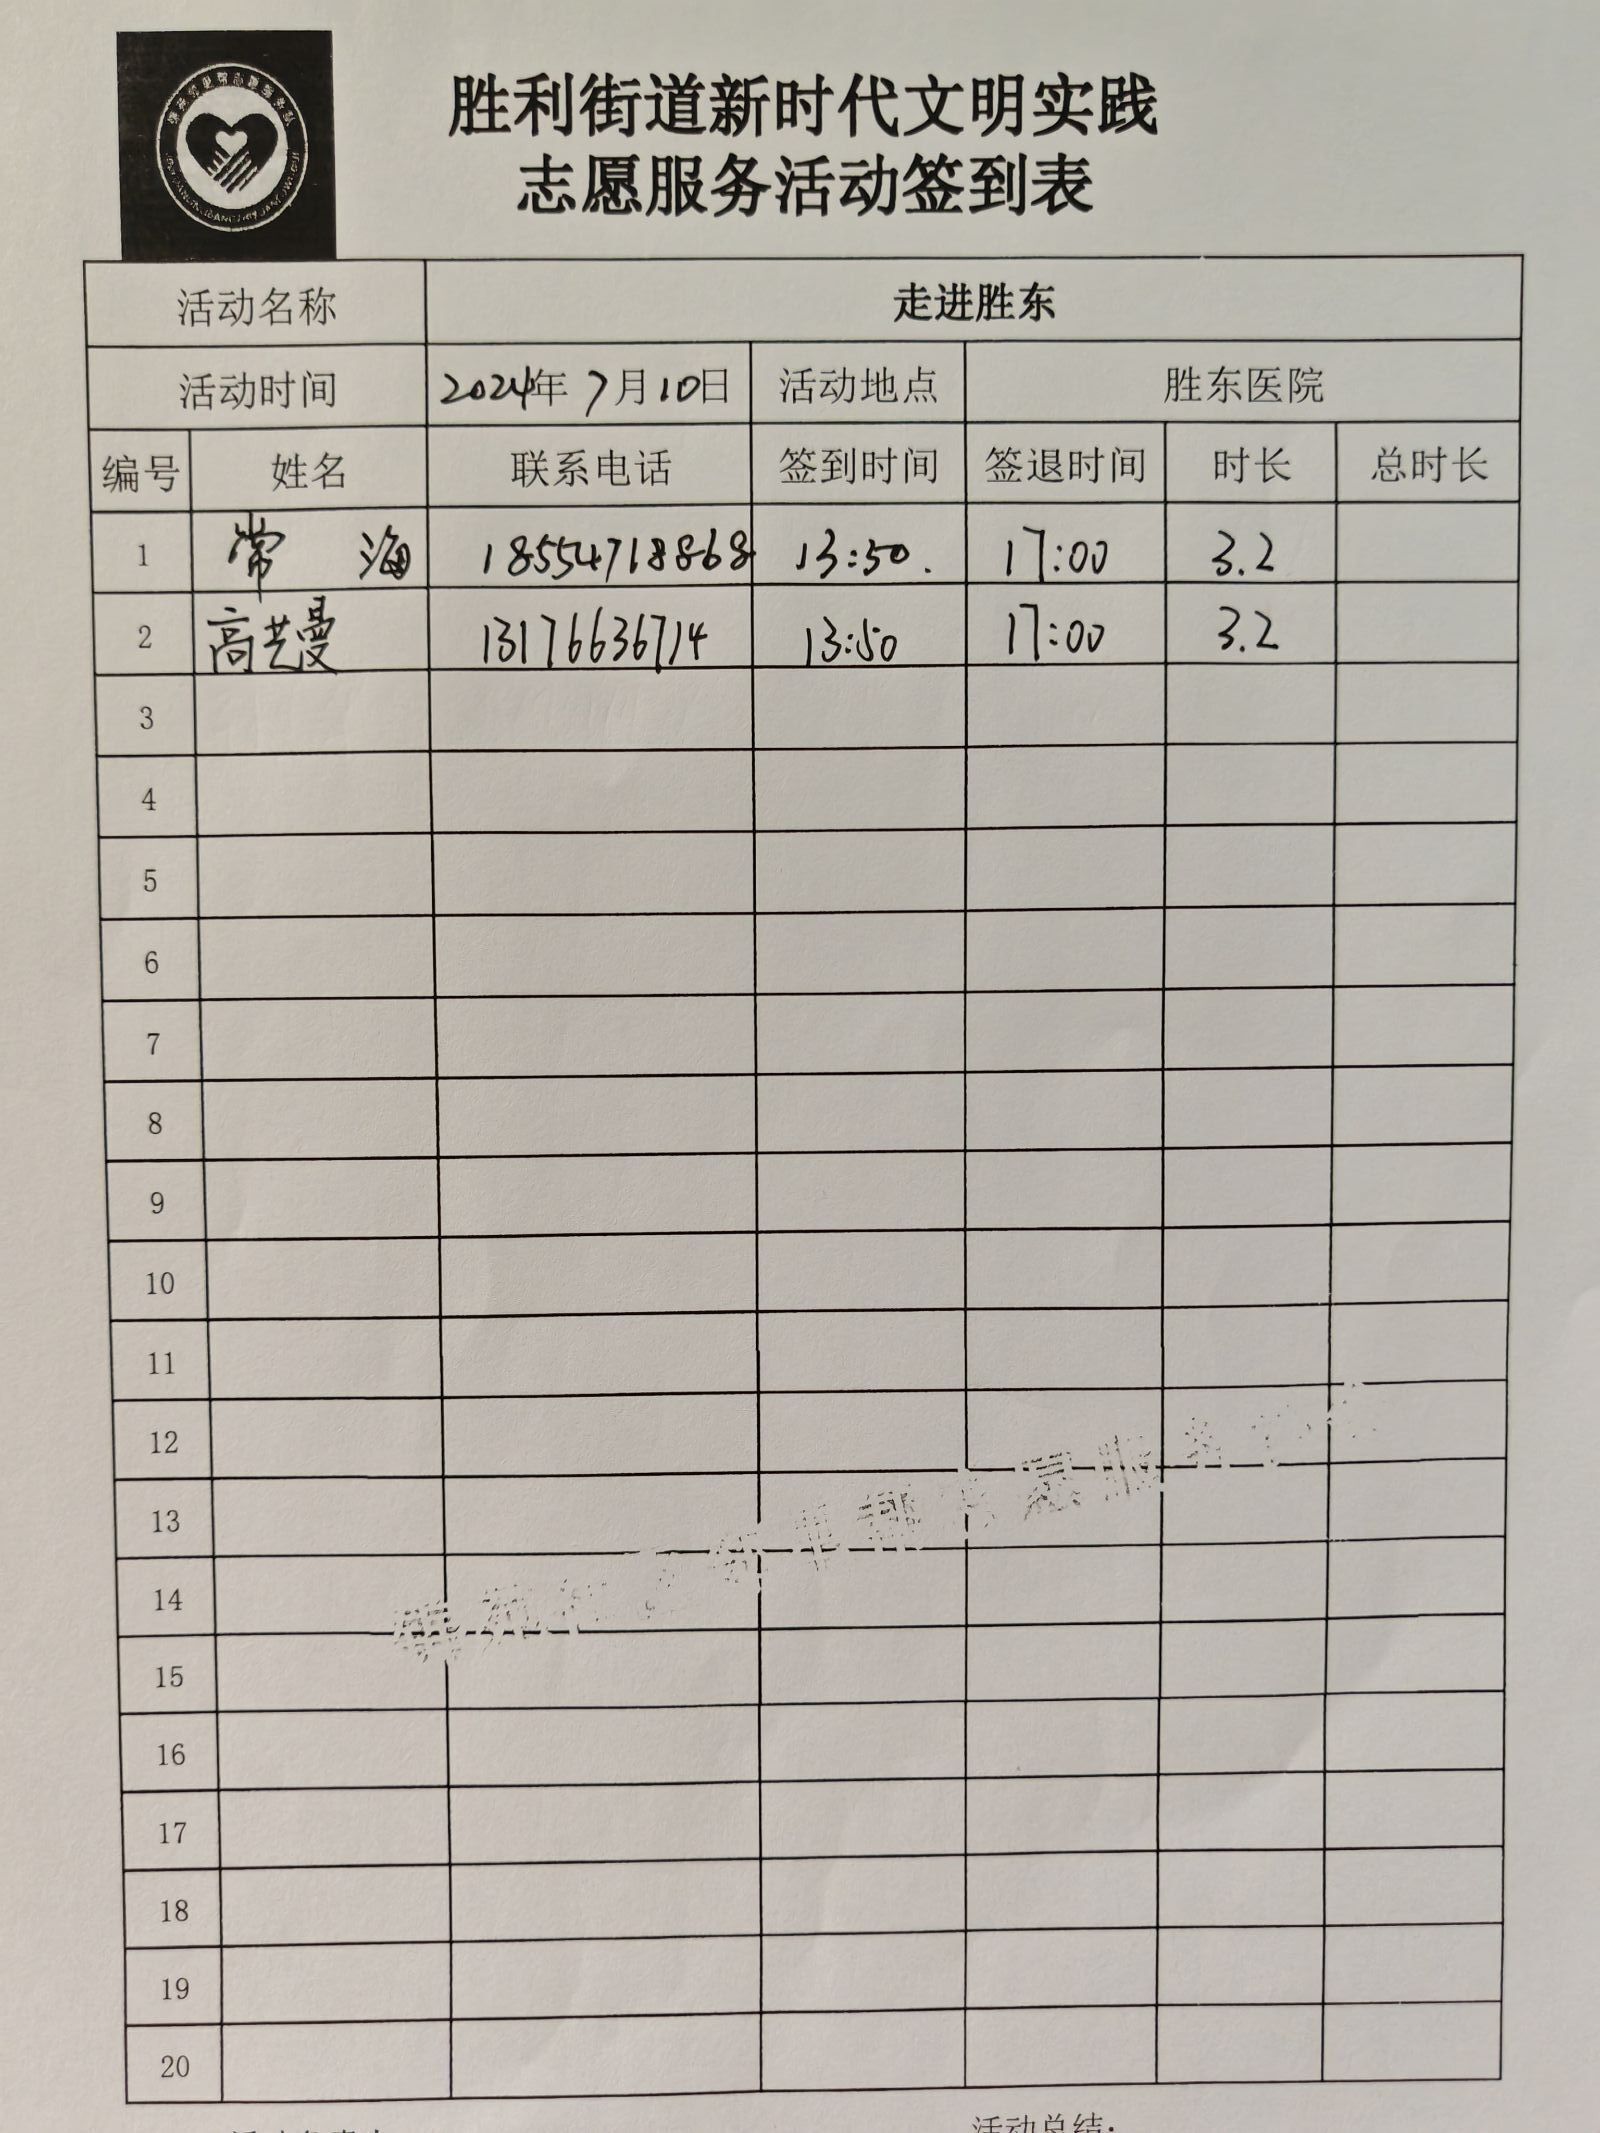 胜利街道新时代文明实践
志愿服务活动签到表
活动名称 走进胜东
活动时间 2024年 7月10日 活动地点 胜东医院
编号 姓名 联系电话 签到时间 签退时间 时长 总时长
1 常 海 18554718868 13:50. 17:00 3.2
2 高艺曼 13176636714 13:50 17:00 3.2
3
4
5
6
7
8
9
10
11
12
13
14
15
16
17
18
19
20
活动总结: